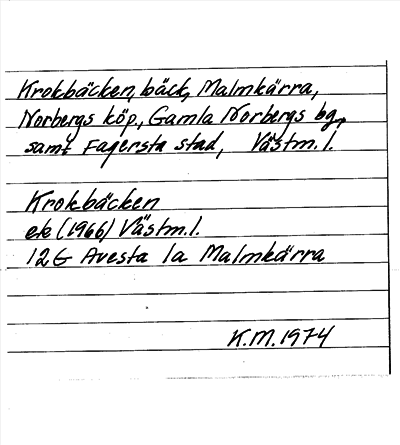 Krokbäcken, bäck, Malmkärra,
Norbergs köp., Gamla Norbergs bg,
samt Fagersta stad, Västm.l.
Krokbäcken
ek (1966) Västm.l.
12G Avesta 1a Malmkärra
K.M. 1974